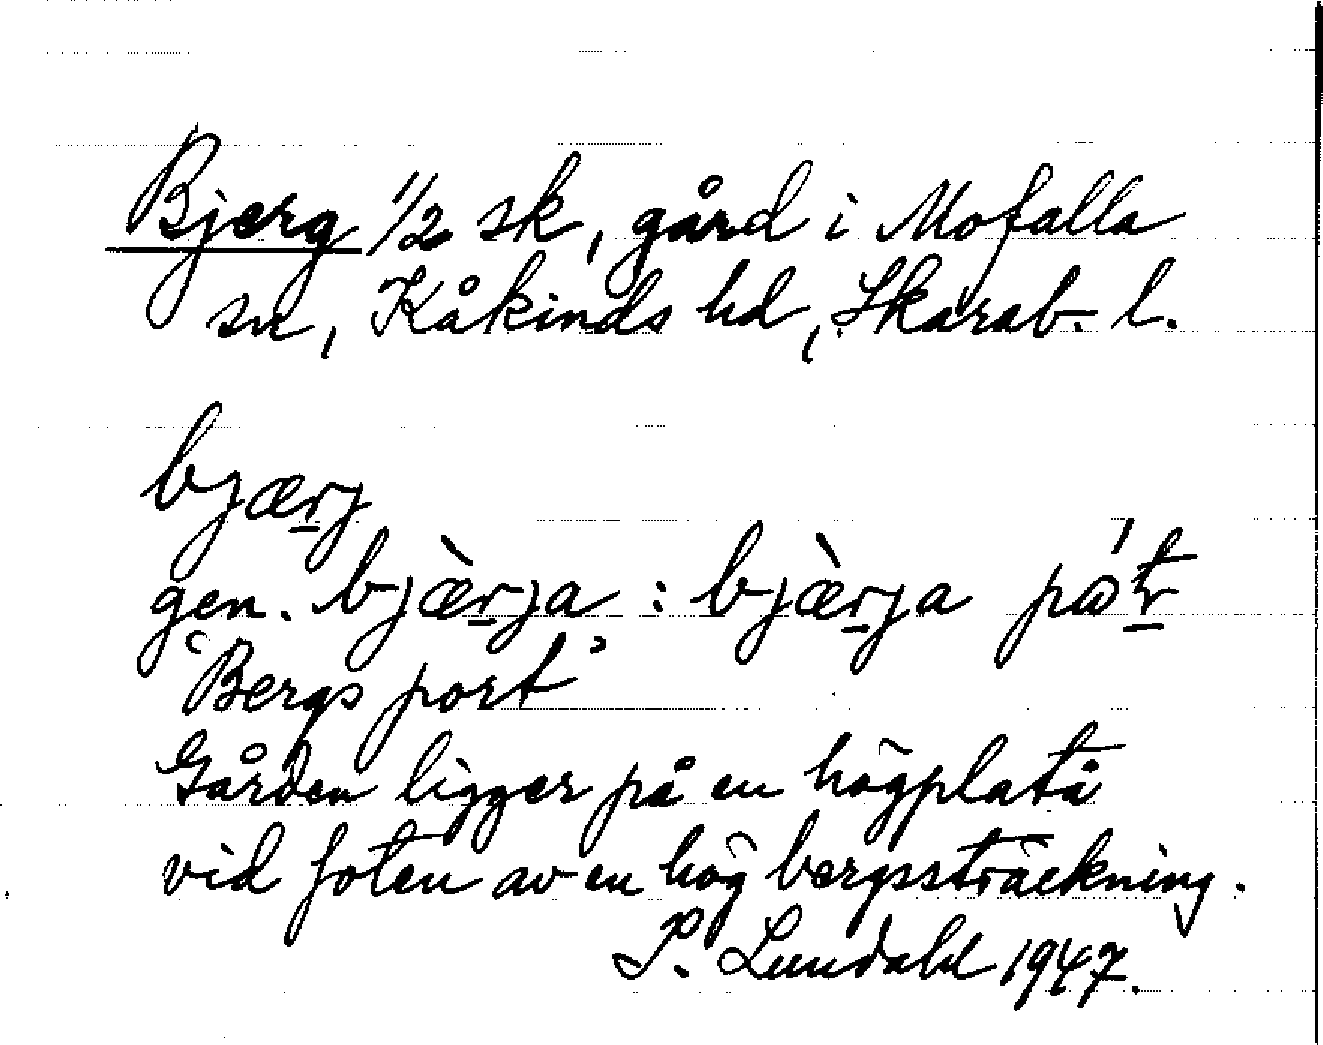 Bjerg 1/2 sk, gård i Mofalla
sn, Kåkinds hd, Skarab. l.
bjær̲j
gen. bjæ̀r̲ja : bjæ̀r̲ja pɷ́t̲r̲
'Bergs port'
Gården ligger på en högplatå
vid foten av en hög bergssträckning.
P. Lundahl 1947.